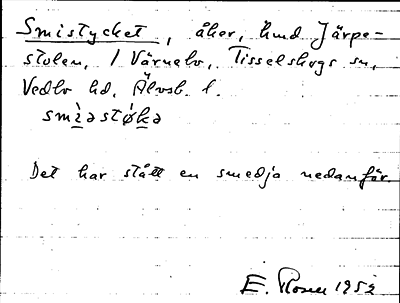 Smistycket, åker, hmd Järpe-
stolen, 1 Värnebo, Tisselskogs sn,
Vedbo hd, Älvsb. l.
smìəstø̀kə
Det har stått en smedja nedanför.
E. Rosen 1952